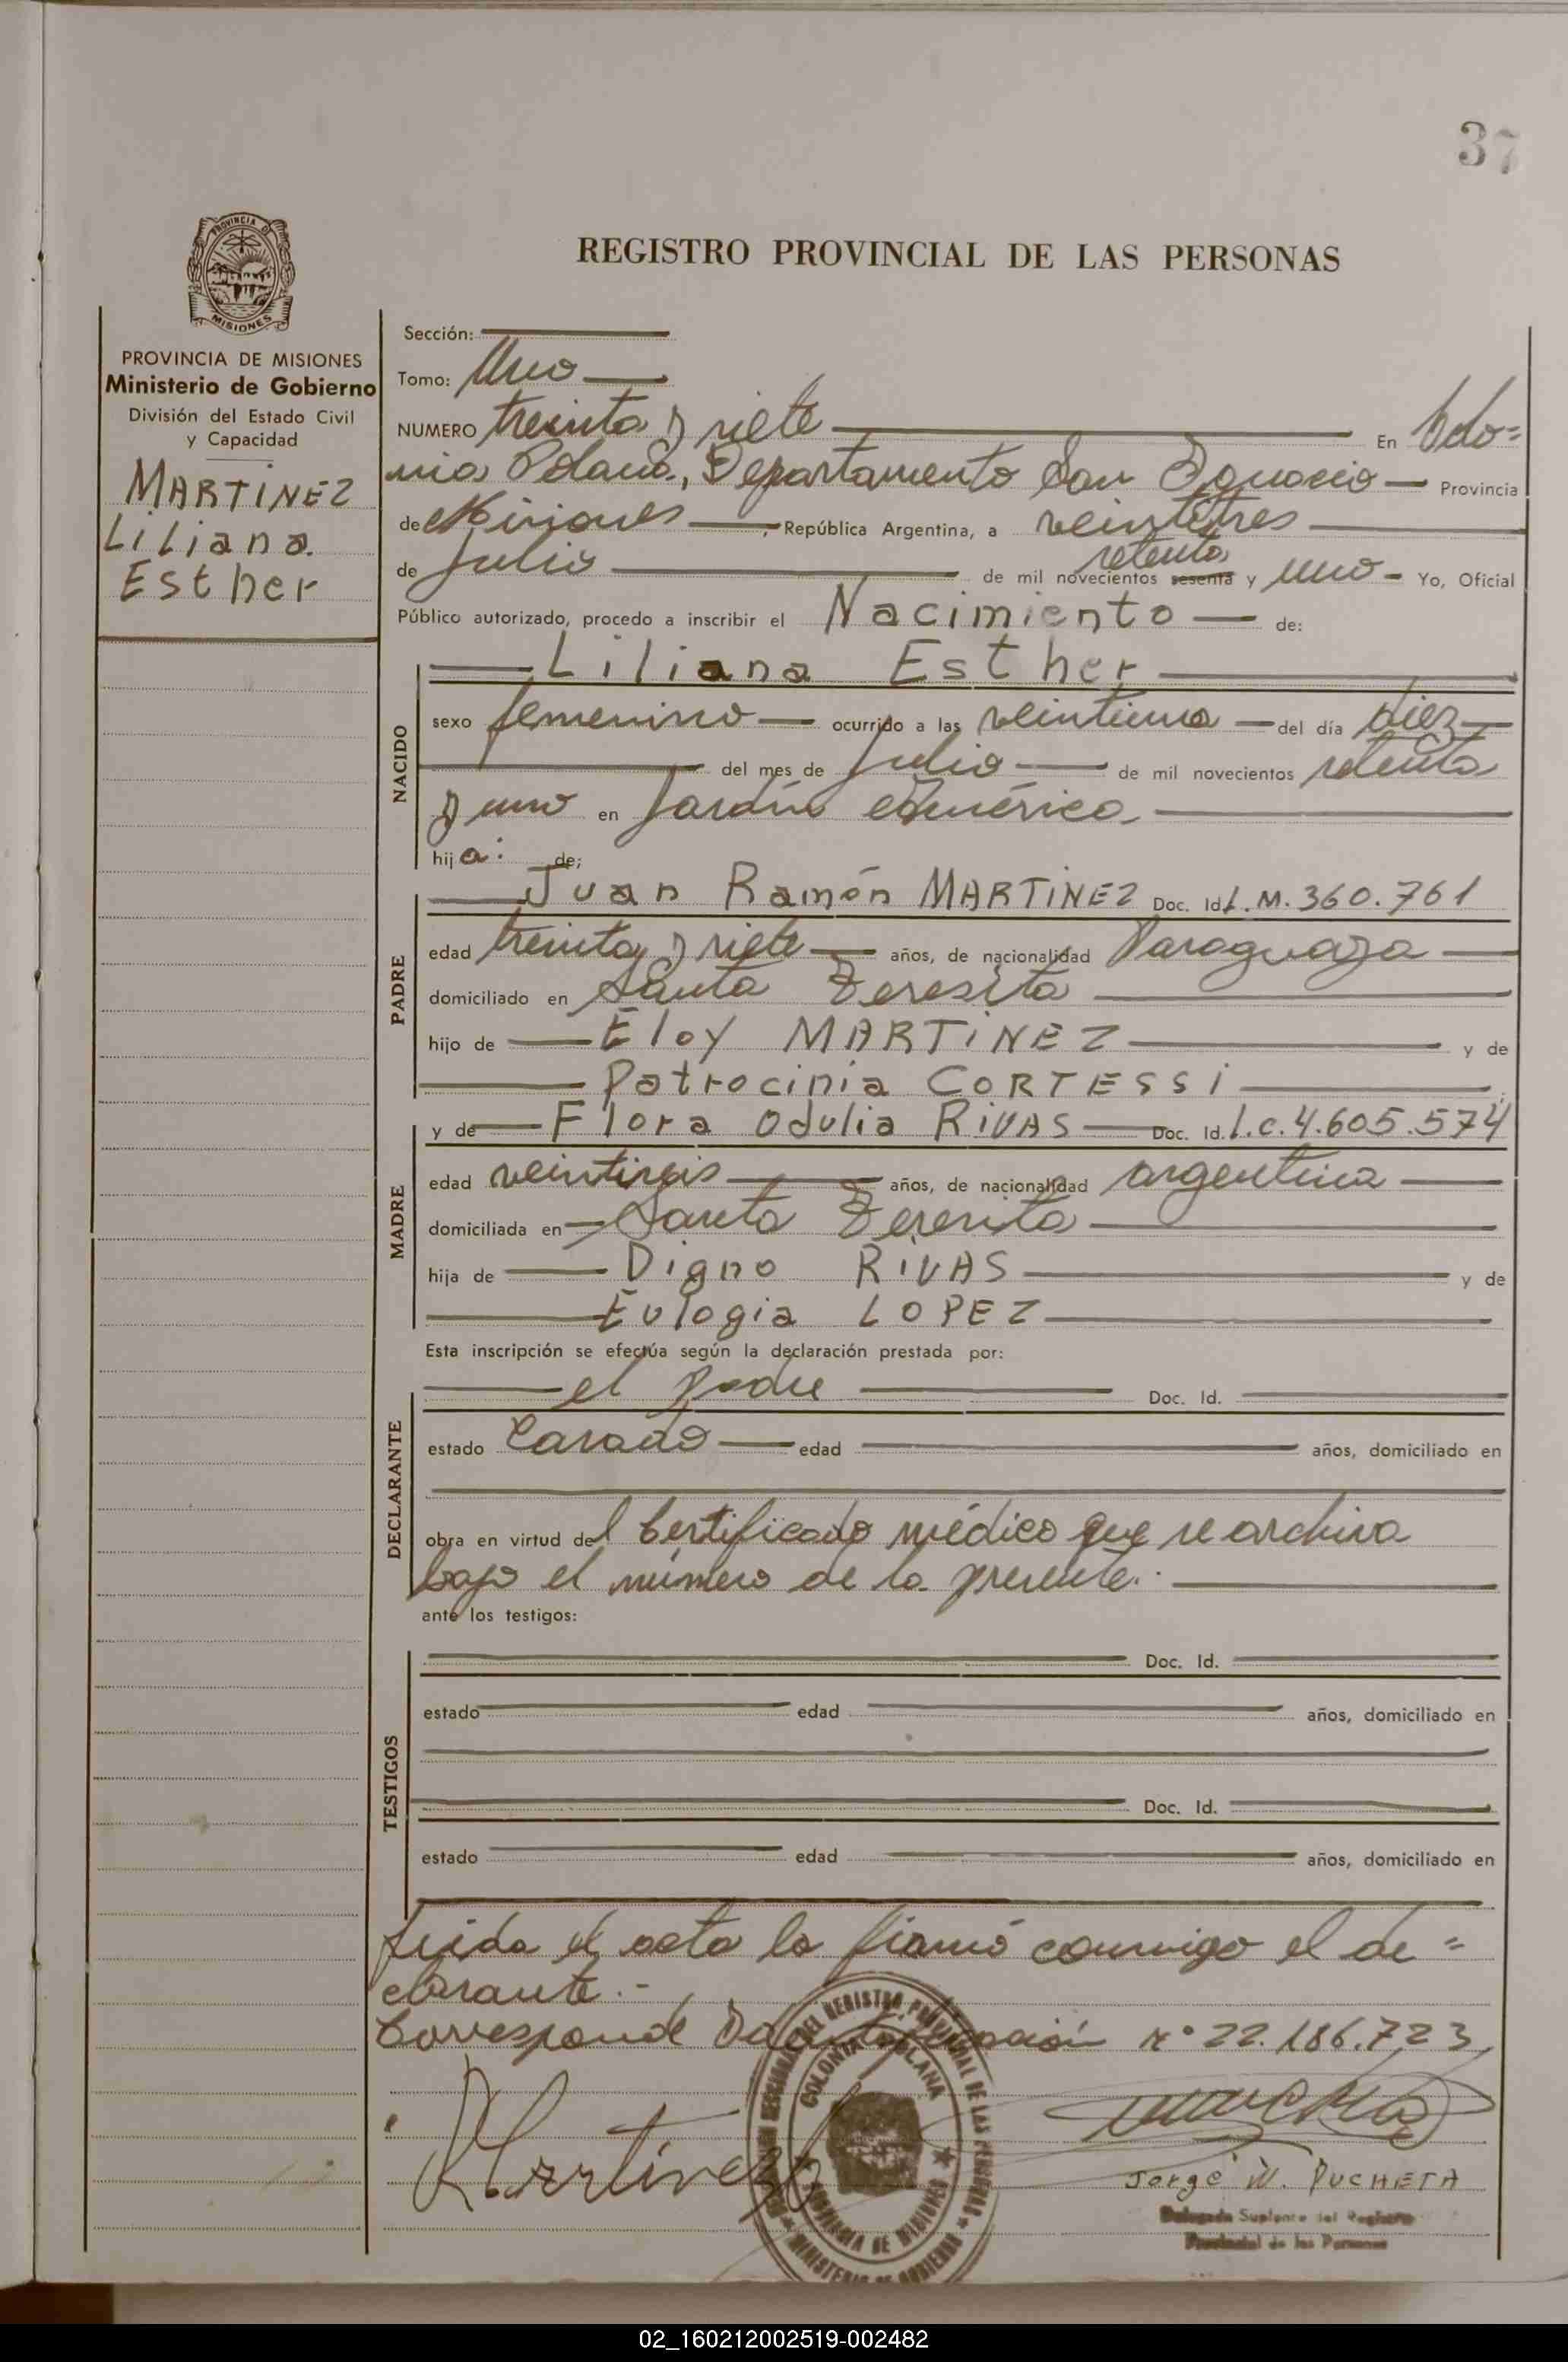 37
PROVINCIA DE
MISIONES
REGISTRO PROVINCIAL DE LAS PERSONAS
PROVINCIA DE MISIONES
Ministerio de Gobierno
División del Estado Civil
y Capacidad
MARTINEZ
Liliana
Esther
Sección:
Tomo: Uno
NUMERO treinta y siete En Colo=
nia Polana, Departamento San Ignacio Provincia
de Misiones, República Argentina, a veintitres
de Julio de mil novecientos sesenta setenta y uno - Yo, Oficial
Público autorizado, procedo a inscribir el Nacimiento de:
Liliana Esther
NACIDO
sexo femenino ocurrido a las veintiuna del día diez
del mes de Julio de mil novecientos setenta
y uno en Jardín América
hija: de;
PADRE
Juan Ramón MARTINEZ Doc. Id. L.M. 360.761
edad treinta y siete años, de nacionalidad Paraguaya
domiciliado en Santa Teresita
hijo de Eloy MARTINEZ y de
Patrocinia CORTESSI
MADRE
y de Flora Odulia RIVAS Doc. Id. L.C. 4.605.574
edad veintiseis años, de nacionalidad argentina
domiciliada en Santa Teresita
hija de Digno RIVAS y de
Eulogia LOPEZ
Esta inscripción se efectúa según la declaración prestada por:
DECLARANTE
el padre Doc. Id.
estado Casado edad años, domiciliado en
obra en virtud del Certificado médico que se archiva
bajo el número de la presente.
ante los testigos:
TESTIGOS
Doc. Id.
estado edad años, domiciliado en
Doc. Id.
estado edad años, domiciliado en
Leida el acta la firmó conmigo el de=
clarante.-
Corresponde Dactificación nº 22.186.723
Martinez
COLONIA POLANA
PROVINCIA DE MISIONES
MINISTERIO DE GOBIERNO
DEL REGISTRO PROVINCIAL DE LAS PERSONAS
Jorge W. PUCHETA
Delegado Suplente del Registro
Provincial de las Personas
02_160212002519-002482